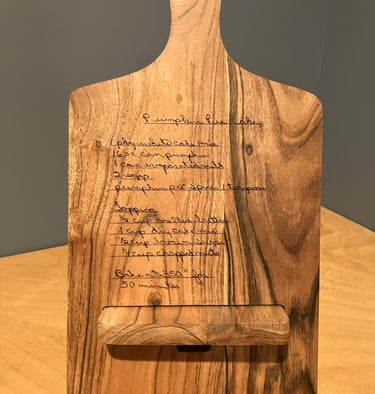 Pumpkin Pie Cake
1 pkg white cake mix
16 oz can pumpkin
1 can evaporated milk
2 eggs
pumpkin pie spice 1 teaspoon
Topping
cup melted butter
1 cup dry cake mix
cup brown sugar
cup chopped nuts
Bake at 350° for
50 minutes